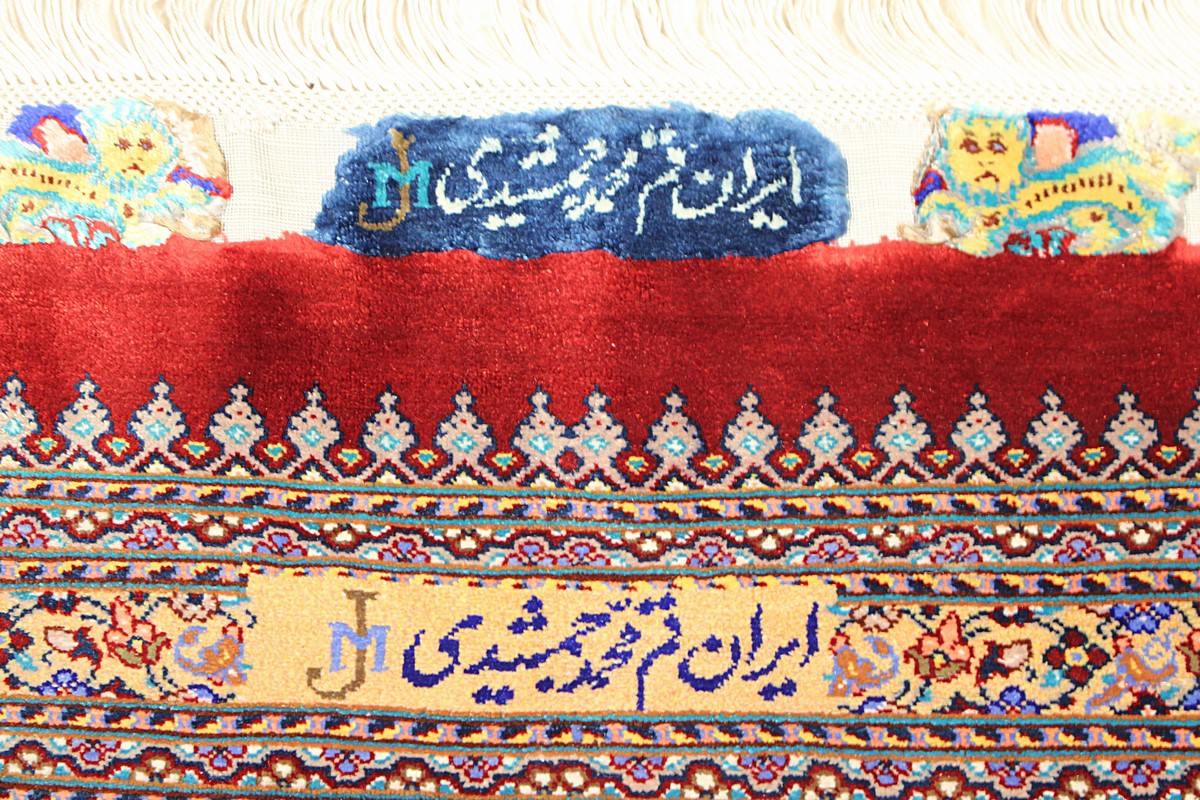 ایران قم محمد جمشیدی JM
ایران قم محمد جمشیدی JM